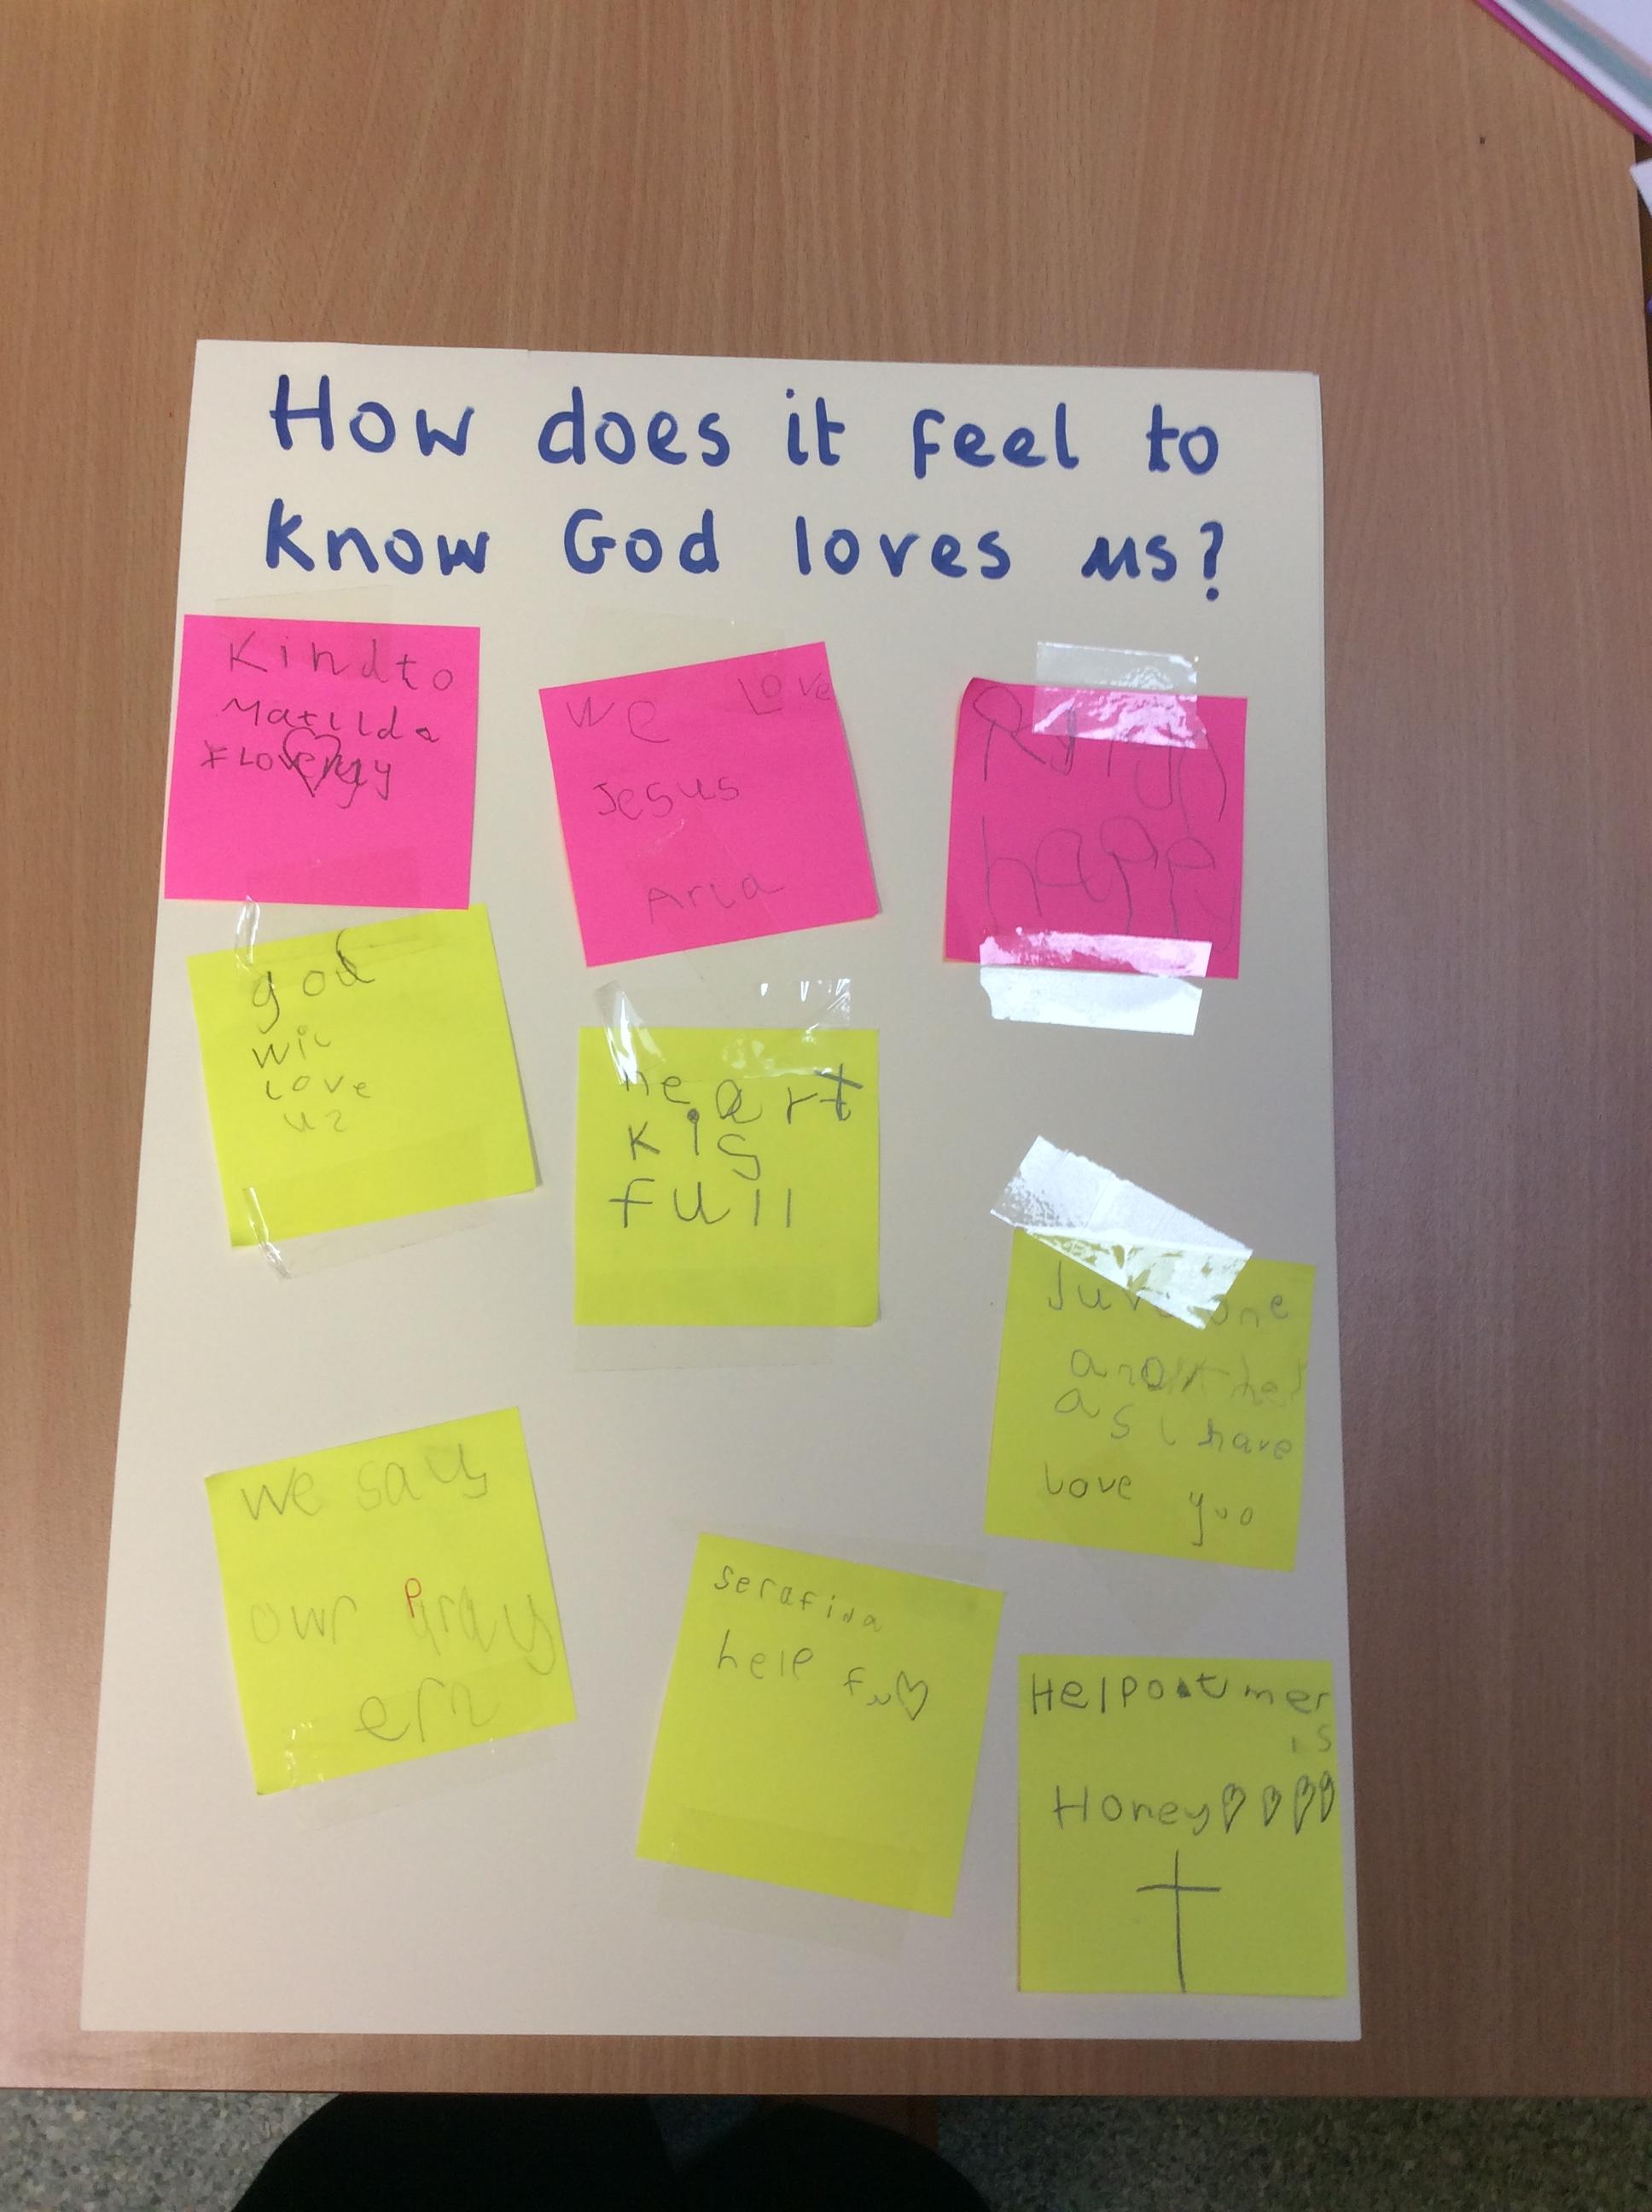 How does it feel to
know God loves us?
Kind to
Matilda
we Love
Jesus
Aria
happy
god
wil
Love
us
heart
is
full
one
another
as i have
love you
we say
our Pray
ers
serafina
help
Help
is
Honey